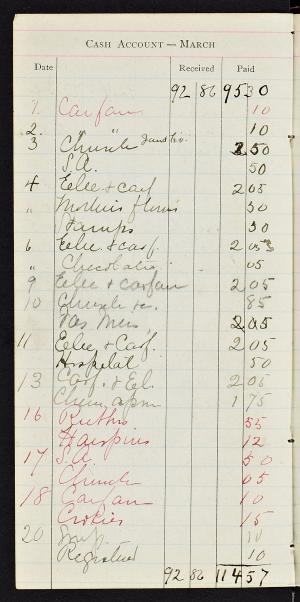 CASH ACCOUNT — MARCH
Date Received Paid
92 86 95 30
1. Carfare 10
2. " 10
3 Church 3 50
S.A. 50
4 Elec. + carf 2 05
" Mothers flowers 30
Stamps 30
6 Elec. + carf. 2 05
" Chocolate 05
9 Elec + carfare 2 05
10 Church 85
2 05
11 Elec + Carf. 2 05
Hospital 50
13 Carf. + El. 2 05
1 75
16 Ruth's 55
Hairpins 12
17 S.A. 50
Church 05
18 Carfare 10
Cookies 15
20 10
Registered 10
92 86 114 57